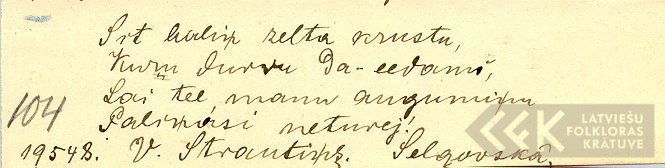 Sit kaliņ zelta krustu,
Kuŗu durvu Da-eedami,
Lai tee, manu augumiņu
Paliņasi neturej!
104
19548. V. Strautiņš. Selgovskā,
LATVIEŠU
FOLKLORAS
KRĀTUVE